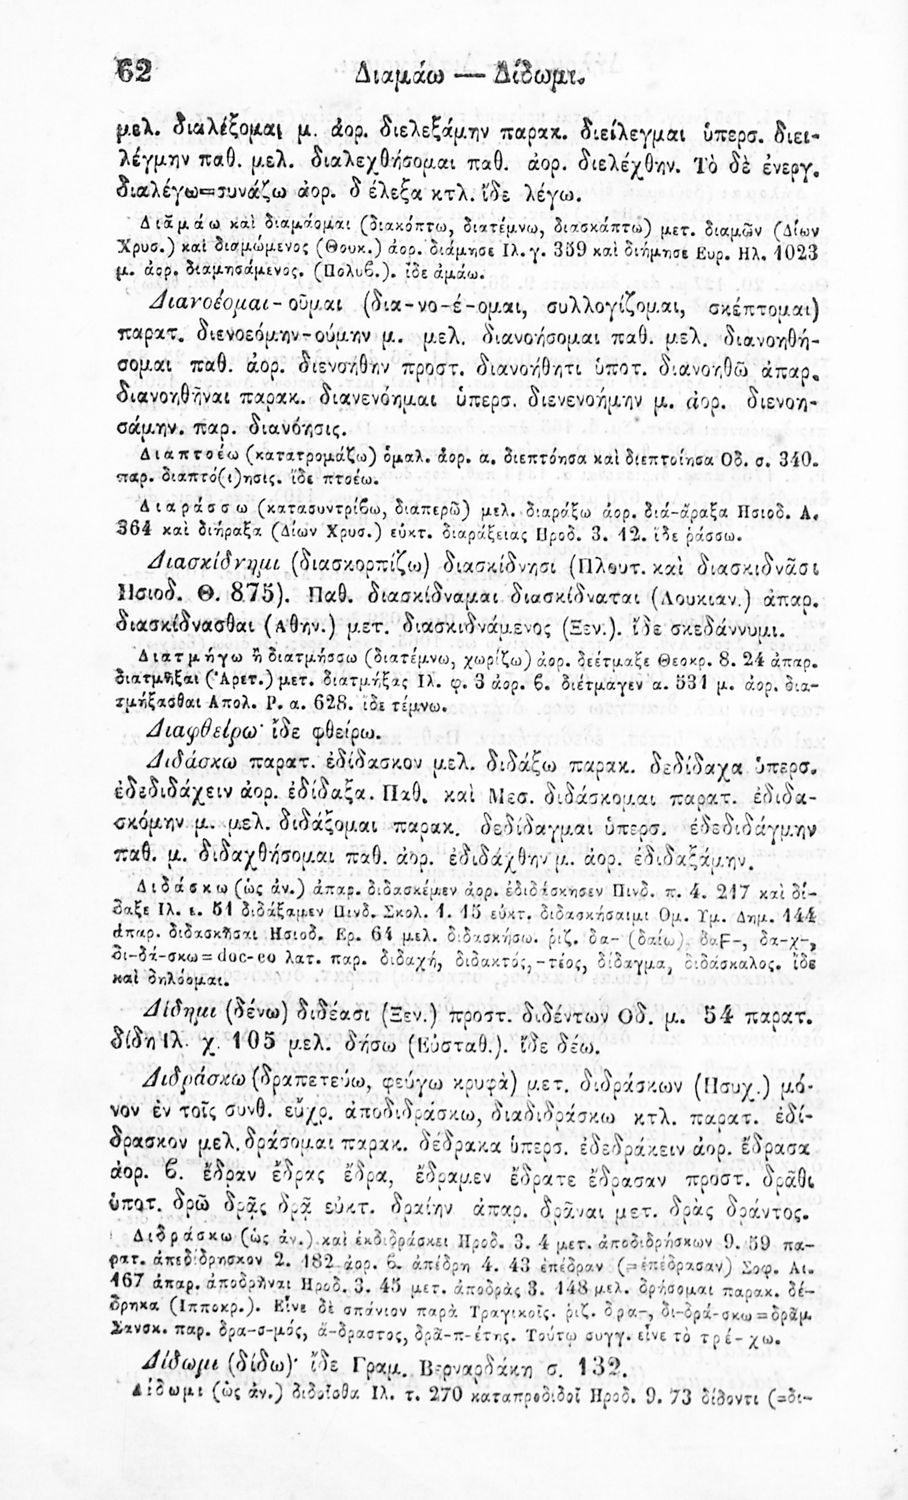 62
Διαμάω — Δίδωμι.
μελ. διαλέξομαι μ. ἀορ. διελεξάμην παρακ. διείλεγμαι ὑπερσ. διει-
λέγμην παθ. μελ. διαλεχθήσομαι παθ. ἀορ. διελέχθην. Τὸ δὲ ἐνεργ.
διαλέγω=συνάζω ἀορ. δ έλεξα κτλ. ἴδε λέγω.
Διαμάω καὶ διαμάομαι (διακόπτω, διατέμνω, διασκάπτω) μετ. διαμῶν (Δίων
Χρυσ.) καὶ διαμώμενος (Θουκ.) ἀορ. διάμησε Ιλ. γ. 359 καὶ διήμησε Ευρ. Ηλ. 1023
μ. ἀορ. διαμησάμενος. (Πολυβ.). ἴδε ἀμάω.
Διανοέομαι-οῦμαι (δια-νο-έ-ομαι, συλλογίζομαι, σκέπτομαι)
παρατ. διενοεόμην-ούμην μ. μελ. διανοήσομαι παθ. μελ. διανοηθή-
σομαι παθ. ἀορ. διενοήθην προστ. διανοήθητι ὑποτ. διανοηθῶ ἀπαρ.
διανοηθῆναι παρακ. διανενόημαι ὑπερσ. διενενοήμην μ. ἀορ. διενοη-
σάμην. παρ. διανόησις.
Διαπτοέω (κατατρομάζω) ὁμαλ. ἀορ. α. διεπτόησα καὶ διεπτοίησα Οδ. σ. 340.
παρ. διαπτό(ι)ησις. ἴδε πτοέω.
Διαράσσω (κατασυντρίβω, διαπερῶ) μελ. διαράξω ἀορ. διά-άραξα Ησιοδ. Α.
364 καὶ διήραξα (Δίων Χρυσ.) εὐκτ. διαράξειας Ηροδ. 3. 12. ἴδε ῥάσσω.
Διασκίδνημι (διασκορπίζω) διασκίδνησι (Πλουτ. καὶ διασκιδνᾶσι
Ησιοδ. Θ. 875). Παθ. διασκίδναμαι διασκίδναται (Λουκιαν.) ἀπαρ.
διασκίδνασθαι (Αθην.) μετ. διασκιδνάμενος (Ξεν.). ἴδε σκεδάννυμι.
Διατμήγω ἢ διατμήσσω (διατέμνω, χωρίζω) ἀορ. δέτμαξε Θεοκρ. 8. 24 ἀπαρ.
διατμῆξαι (Ἀρετ.) μετ. διατμήξας Ιλ. φ. 3 ἀορ. β. διέτμαγεν α. 531 μ. ἀορ. δια-
τμήξασθαι Απολ. Ρ. α. 628. ἴδε τέμνω.
Διαφθείρω· ἴδε φθείρω.
Διδάσκω παρατ. ἐδίδασκον μελ. διδάξω παρακ. δεδίδαχα ὑπερσ.
ἐδεδιδάχειν ἀορ. ἐδίδαξα. Παθ. καὶ Μεσ. διδάσκομαι παρατ. ἐδιδα-
σκόμην μ. μελ. διδάξομαι παρακ. δεδίδαγμαι ὑπερσ. ἐδεδιδάγμην
παθ. μ. διδαχθήσομαι παθ. ἀορ. ἐδιδάχθην μ. ἀορ. ἐδιδαξάμην.
Διδάσκω (ὡς ἀν.) ἀπαρ. διδασκέμεν ἀορ. ἐδιδάσκησεν Πινδ. π. 4. 217 καὶ δί-
δαξε Ιλ. ε. 51 διδάξαμεν Πινδ. Σκολ. 1. 15 εὐκτ. διδασκήσαιμι Ομ. Υμ. Δημ. 144
ἀπαρ. διδασκῆσαι Ησιοδ. Ερ. 64 μελ. διδασκήσω. ῥιζ. δα- (δαίω) δαϝ-, δα-χ-,
δι-δά-σκω=doc-eo λατ. παρ. διδαχή, διδακτός, -τέος, δίδαγμα, διδάσκαλος. ἴδε
καὶ δηλόομαι.
Δίδημι (δένω) διδέασι (Ξεν.) προστ. διδέντων Οδ. μ. 54 παρατ.
δίδη Ιλ. χ. 105 μελ. δήσω (Εὐσταθ.). ἴδε δέω.
Διδράσκω (δραπετεύω, φεύγω κρυφὰ) μετ. διδράσκων (Ησυχ.) μό-
νον ἐν τοῖς συνθ. εὔχρ. ἀποδιδράσκω, διαδιδράσκω κτλ. παρατ. ἐδί-
δρασκον μελ. δράσομαι παρακ. δέδρακα ὑπερσ. ἐδεδράκειν ἀορ. ἔδρασα
ἀορ. β. ἔδραν ἔδρας ἔδρα, ἔδραμεν ἔδρατε ἔδρασαν προστ. δρᾶθι
ὑποτ. δρῶ δρᾷς δρᾷ εὐκτ. δραίην ἀπαρ. δρᾶναι μετ. δρὰς δράντος.
Διδράσκω (ὡς ἀν.) καὶ ἐκδιδρῄσκει Ηροδ. 3. 4 μετ. ἀποδιδρήσκων 9. 59 πα-
ρατ. ἀπεδίδρησκον 2. 182 ἀορ. β. ἀπέδρη 4. 43 ἐπέδραν (=ἐπέδρασαν) Σοφ. Αι.
167 ἀπαρ. ἀποδρῆναι Ηροδ. 3. 45 μετ. ἀποδρὰς 3. 148 μελ. δρήσομαι παρακ. δέ-
δρηκα (Ιπποκρ.). Εἶνε δὲ σπάνιον παρὰ Τραγικοῖς. ῥιζ. δρα-, δι-δρά-σκω=δρᾶμ
Σανσκ. παρ. δρα-σ-μός, ἄ-δραστος, δρᾱ-π-έτης. Τούτῳ συγγ. εἶνε τὸ τρέ-χω.
Δίδωμι (δίδω)· ἴδε Γραμ. Βερναρδάκη σ. 132.
Δίδωμι (ὡς ἀν.) διδοῖσθα Ιλ. τ. 270 καταπροδιδοῖ Ηροδ. 9. 73 δίδοντι (=δι-